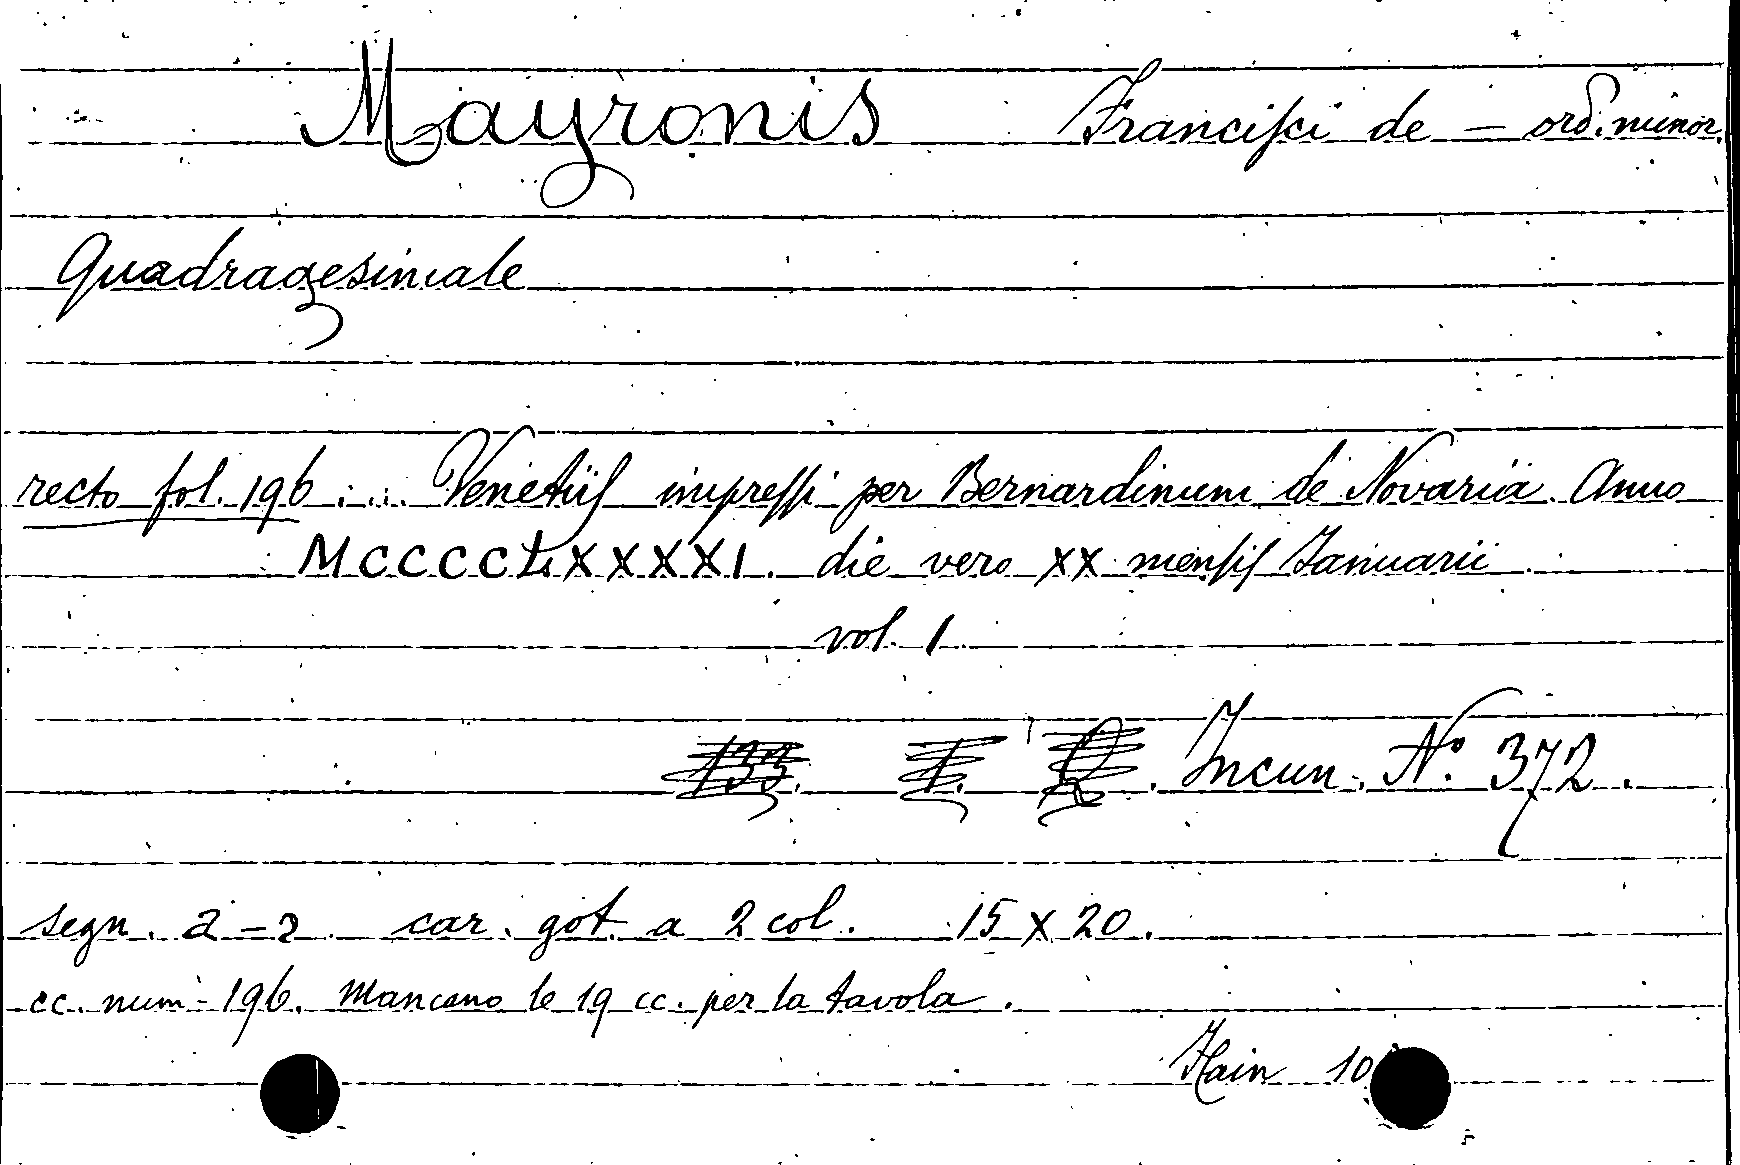 Mayronis Franciſci de — ord. minor.
Quadragesimale
recto fol. 196 : ... Venetiiſ impreſſi per Bernardinum de Novaria Anno
MCCCCLXXXXI. die vero XX menſiſ Januarii
vol. 1
133. 1. Incun. N.º 372.
segn. a-z car. got. a 2 col. 15 x 20.
cc. num. 196. Mancano le 19 cc. per la tavola.
Hain 10